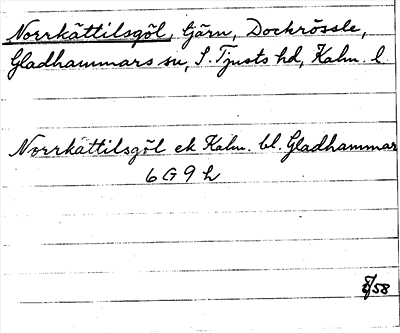 Norrkättilsgöl, tjärn, Dockrössle,
Gladhammars sn, S. Tjusts hd, Kalm. l.
Norrkättilsgöl ek Kalm. bl. Gladhammar
6 G 9 h
58